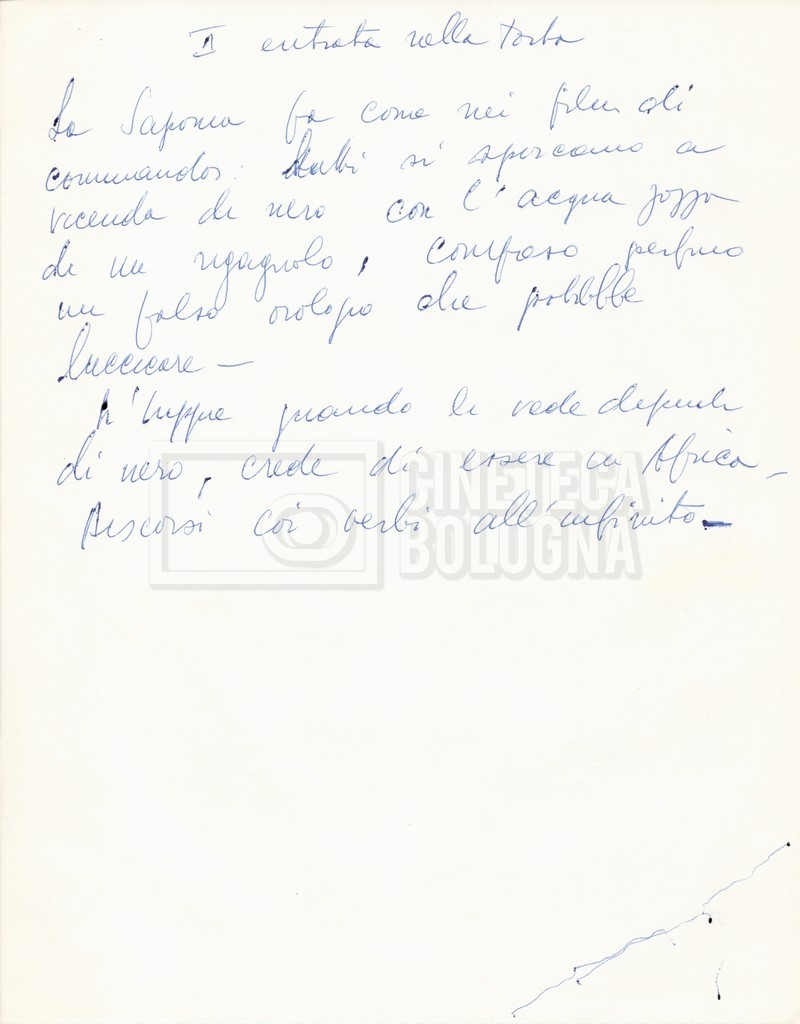 II entrata nella torba
La Saponia fa come nei film di
commandos: Mutti si sporcano a
vicenda di nero con l'acqua zozza
di un rigagnolo, compreso perfino
un falso orologio che potrebbe
luccicare —
quando li vede dipinti
di nero, crede di essere in Africa —
Discorsi coi verbi all'infinito —
CINETECA
BOLOGNA